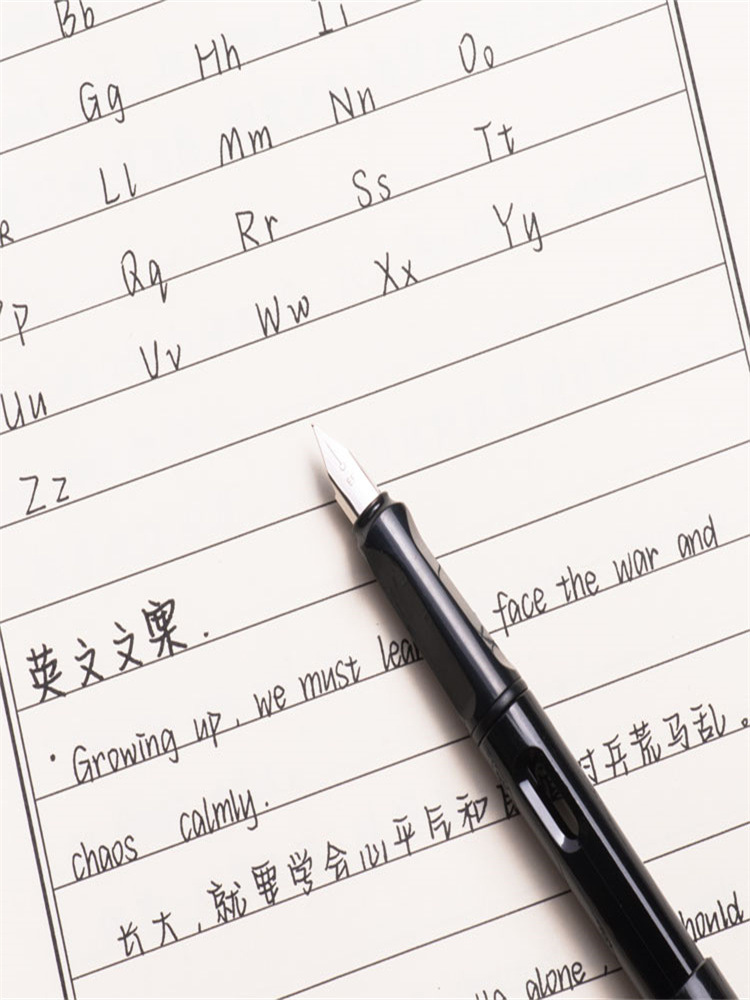 Bb
Gg Hh Ii
Ll Mm Nn Oo
Pp Qq Rr Ss Tt
Uu Vv Ww Xx Yy
Zz
英文文案.
· Growing up, we must face the war and
chaos calmly.
长大，就要学会心平气和 对兵荒马乱。
alone ,